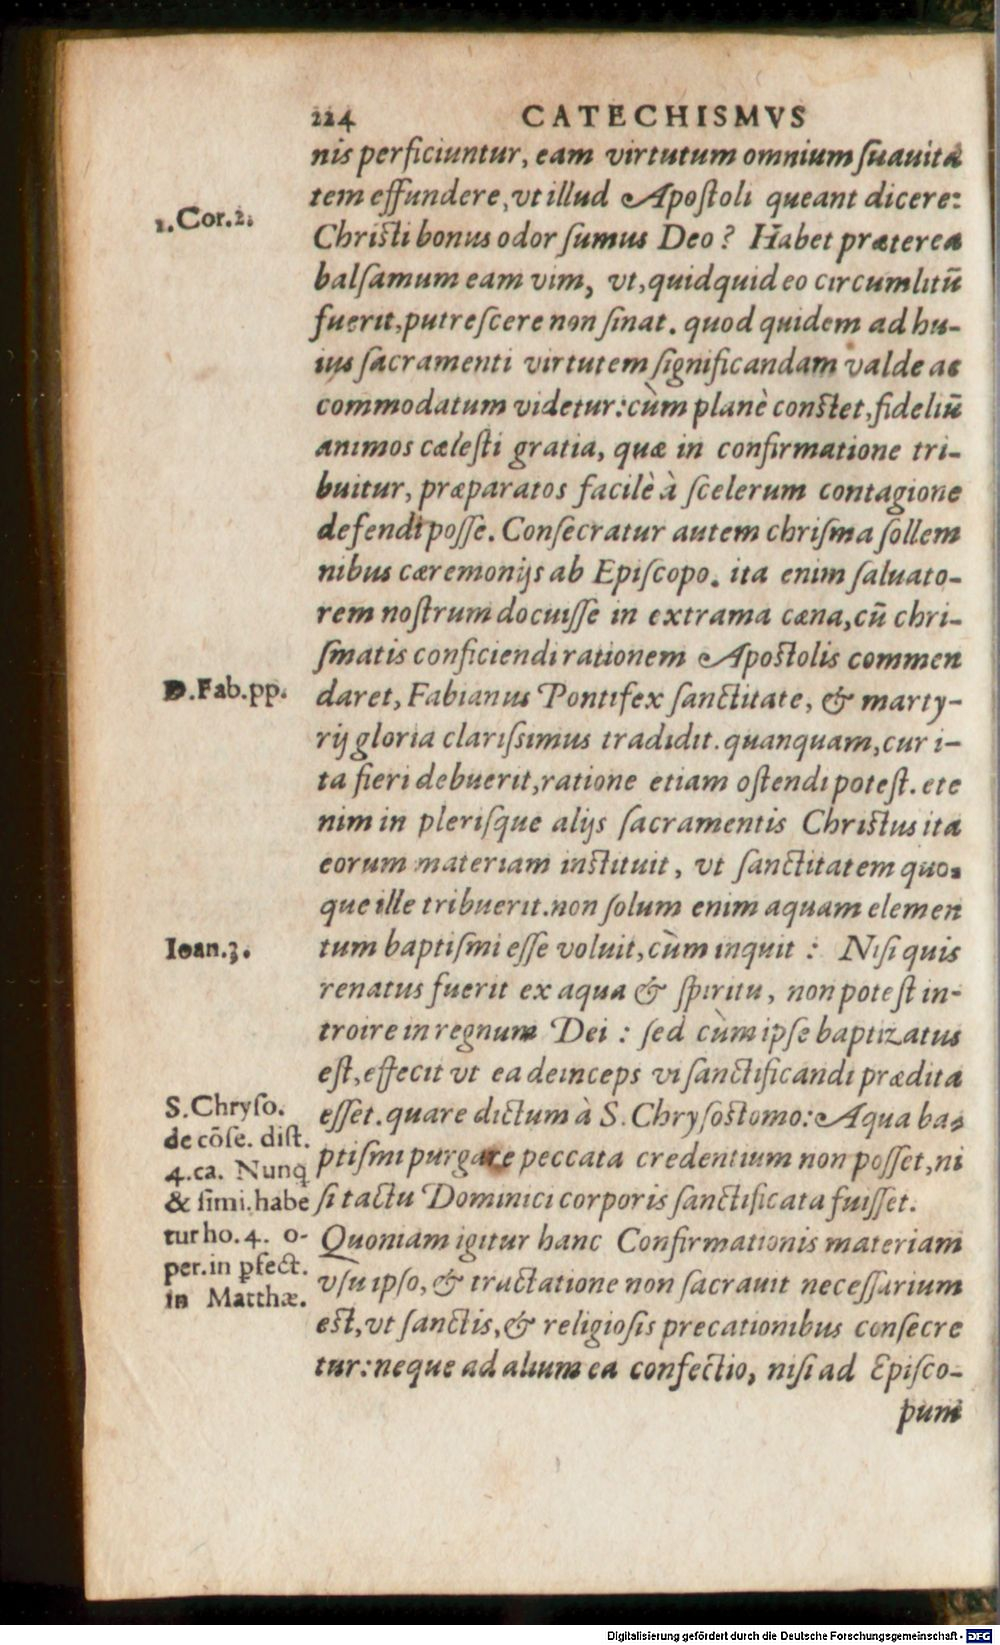 224 CATECHISMVS
nis perficiuntur, eam virtutum omnium ſuauita
tem effundere, vt illud Apoſtoli queant dicere:
1.Cor.2.
Chriſti bonus odor ſumus Deo? Habet præterea
balſamum eam vim, vt, quidquid eo circumlitū
fuerit, putreſcere non ſinat. quod quidem ad hu-
ius ſacramenti virtutem ſignificandam valde ac
commodatum videtur: cùm planè conſtet, fideliū
animos cæleſti gratia, quæ in confirmatione tri-
buitur, præparatos facilè à ſcelerum contagione
defendi poſſe. Conſecratur autem chriſma ſollem
nibus cæremonijs ab Epiſcopo. ita enim ſaluato-
rem noſtrum docuiſſe in extrama cæna, cū chri-
ſmatis conficiendi rationem Apoſtolis commen
D.Fab.pp.
daret, Fabianus Pontifex ſanctitate, & marty-
rij gloria clariſsimus tradidit. quanquam, cur i-
ta fieri debuerit, ratione etiam oſtendi poteſt. ete
nim in pleriſque alijs ſacramentis Chriſtus ita
eorum materiam inſtituit, vt ſanctitatem quo-
que ille tribuerit. non ſolum enim aquam elemen
Ioan.3.
tum baptiſmi eſſe voluit, cùm inquit: Niſi quis
renatus fuerit ex aqua & ſpiritu, non poteſt in-
troire in regnum Dei: ſed cùm ipſe baptizatus
eſt, effecit vt ea deinceps vi ſanctificandi prædita
eſſet. quare dictum à S. Chryſoſtomo: Aqua ba-
ptiſmi purgare peccata credentium non poſſet, ni
ſi tactu Dominici corporis ſanctificata fuiſſet.
S.Chryſo.
de cōſe. diſt.
4.ca. Nunq
& ſimi. habe
tur ho. 4. o-
per. in ꝑfect.
in Matthæ.
Quoniam igitur hanc Confirmationis materiam
vſu ipſo, & tractatione non ſacrauit neceſſarium
eſt, vt ſanctis, & religioſis precationibus conſecre
tur: neque ad alium ea confectio, niſi ad Epiſco-
pum
Digitalisierung gefördert durch die Deutsche Forschungsgemeinschaft - DFG